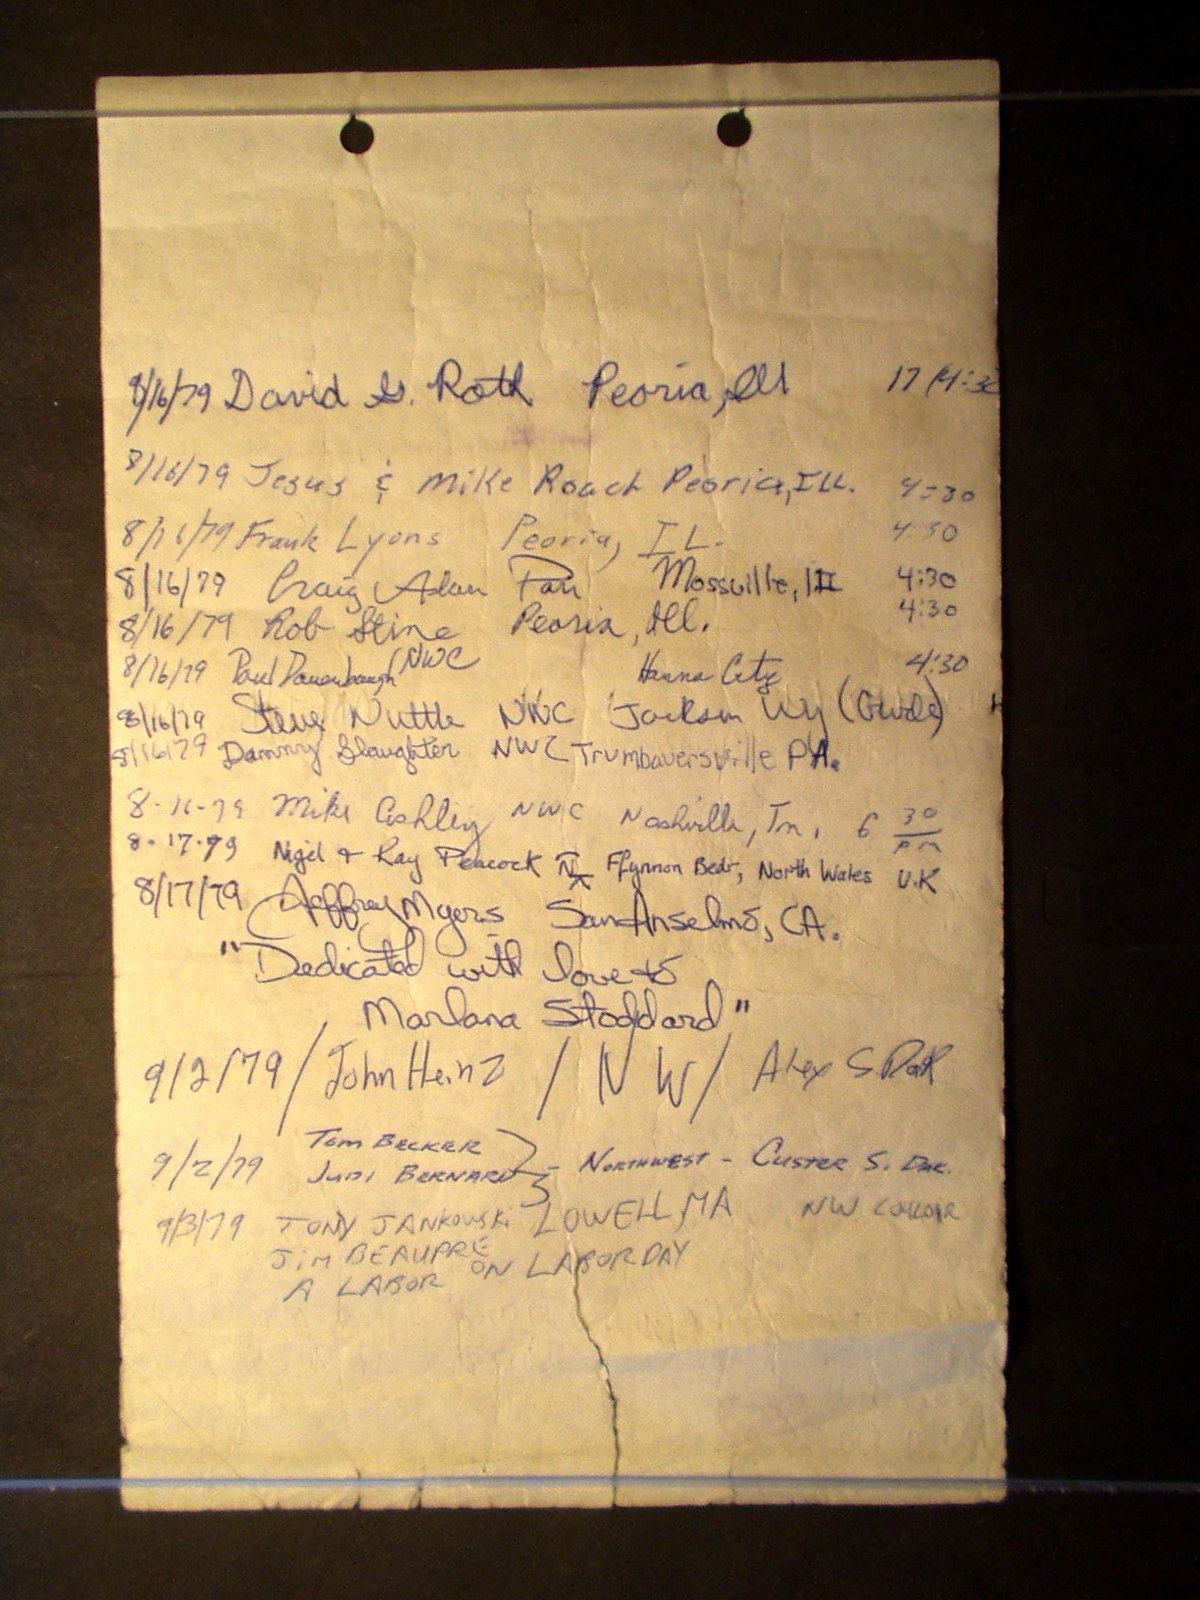 8/16/79 David G. Roth Peoria, Ill 17 /4:30
8/16/79 Jesus & Mike Roach Peoria, ILL. 4:30
8/16/79 Frank Lyons Peoria, IL. 4:30
8/16/79 Craig Alan Mossville, Ill 4:30
8/16/79 Rob Stine Peoria, Ill. 4:30
8/16/79 Paul Dauenbaugh NWC Hanna City 4:30
8/16/79 Steve Nuttle NWC Jackson Wy (Guide)
8/16/79 Danny Slaughter NWC Trumbauersville PA.
8-16-79 Mike Ashley NWC Nashville, Tn. 6 30 pm
8-17-79 Nigel & Kay Peacock Ffynnon Bedr, North Wales U.K
8/17/79 Jeffrey Myers San Anselmo, CA.
"Dedicated with love to
Marlana Stoddard"
9/2/79 / John Heinz / NW / Alex S. Dak
9/2/79 Tom Becker
Judi Bernard } - Northwest - Custer S. Dak.
9/3/79 TONY JANKOWSKI LOWELL MA NW COULOIR
JIM BEAUPRE
A LABOR ON LABOR DAY